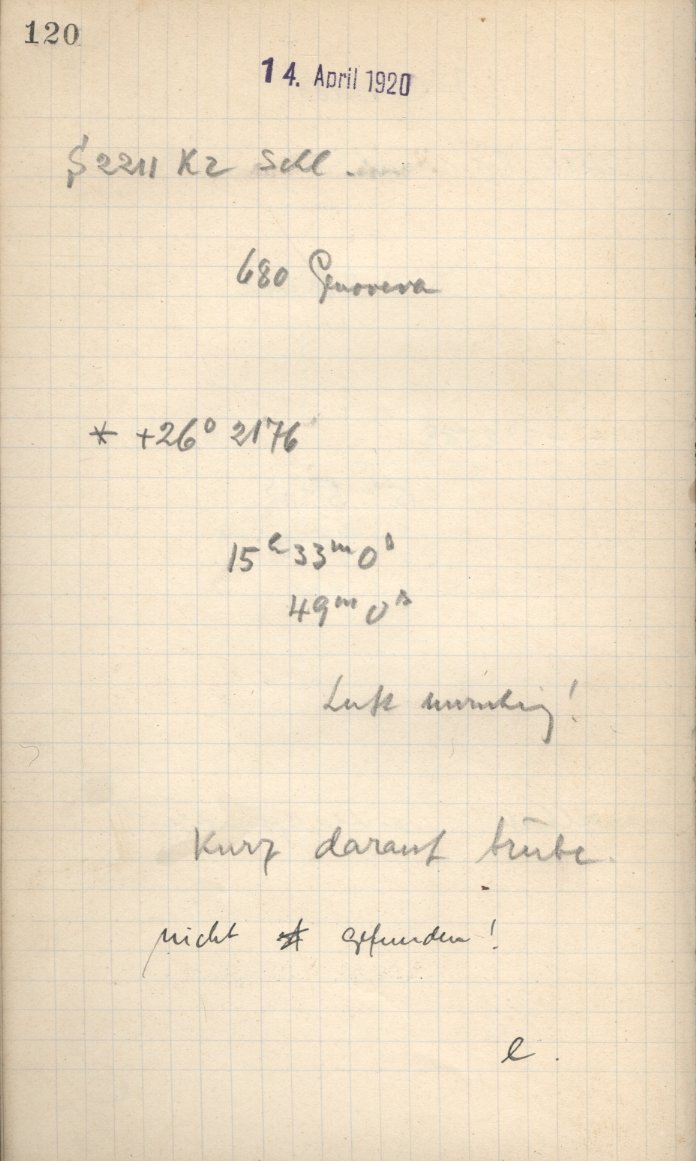 120
14. April 1920
2211 Kz Schl.
680 Genoveva
* +26° 2176
15h 33m 0s
49m 0s
Luft unruhig!
Kurz darauf trübe.
nicht gefunden!
e.